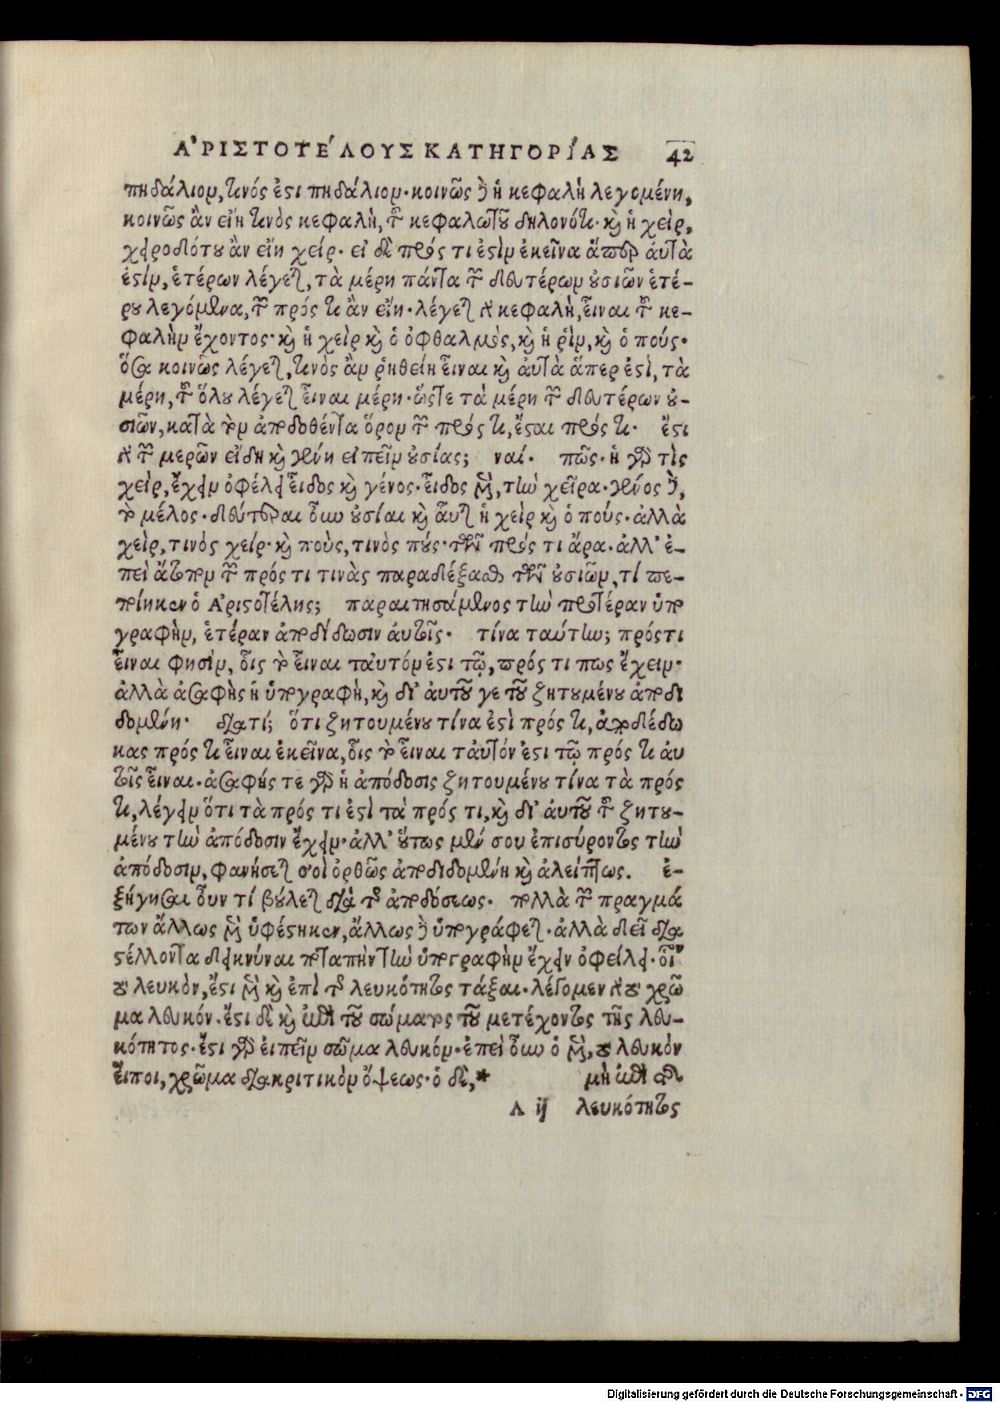 ΑʼΡΙΣΤΟΤΕ΄ΛΟΥΣ ΚΑΤΗΓΟΡΙ΄ΑΣ 42
πηδάλιον, τινός ἐστι πηδάλιον· κοινῶς δὲ ἡ κεφαλὴ λεγομένη,
κοινῶς ἂν εἴη τινὸς κεφαλὴ, τοῦ κεφαλωτοῦ δηλονότι· καὶ ἡ χεὶρ,
χειροδότου ἂν εἴη χείρ· εἰ δὲ πρός τι ἐστὶν ἐκεῖνα ἅπερ αὐτὰ
ἐστὶν, ἑτέρων λέγεται, τὰ μέρη πάντα τῶν δευτέρων οὐσιῶν ἑτέ-
ρου λεγόμενα, τῶν πρός τι ἂν εἴη· λέγεται γὰρ κεφαλὴ, εἶναι τοῦ κε-
φαλὴν ἔχοντος· καὶ ἡ χεὶρ καὶ ὁ ὀφθαλμὸς, καὶ ἡ ῥὶν, καὶ ὁ πούς·
ὅσα κοινῶς λέγεται, τινὸς ἂν ῥηθείη εἶναι καὶ αὐτὰ ἅπερ ἐστὶ, τὰ
μέρη, τοῦ ὅλου λέγεται εἶναι μέρη· ὥστε τὰ μέρη τῶν δευτέρων οὐ-
σιῶν, κατὰ τὸν ἀποδοθέντα ὅρον τῶν πρός τι, ἔσται πρός τι· ἔστι
γὰρ τῶν μερῶν εἴδη καὶ γένη εἰπεῖν οὐσίας; ναί· πῶς· ἡ γὰρ τὶς
χεὶρ, ἔχειν ὀφείλει εἶδος καὶ γένος· εἶδος μὲν, τὴν χεῖρα· γένος δὲ,
τὸ μέλος· δεύτεραι οὖν οὐσίαι καὶ αὗται ἡ χεὶρ καὶ ὁ πούς· ἀλλὰ
χεὶρ, τινὸς χείρ· καὶ ποὺς, τινὸς πούς· τῶν πρός τι ἄρα· ἀλλ' ἐ-
πεὶ ἄτοπον τῶν πρός τι τινὰς παραδέξασθαι τῶν οὐσιῶν, τί πε-
ποίηκεν ὁ Ἀριστοτέλης; παραιτησάμενος τὴν προτέραν ὑπο
γραφὴν, ἑτέραν ἀποδίδωσιν αὖθις· τίνα ταύτην; πρός τι
εἶναι φησὶν, οἷς τὸ εἶναι ταὐτόν ἐστι τῷ, πρός τι πως ἔχειν·
ἀλλὰ ἀσαφὴς ἡ ὑπογραφὴ, καὶ δι' αὐτοῦ γε τοῦ ζητουμένου ἀποδι
δομένη· διατί; ὅτι ζητουμένου τίνα ἐστὶ πρός τι, ἀποδέδω
κας πρός τι εἶναι ἐκεῖνα, οἷς τὸ εἶναι ταὐτόν ἐστι τῷ πρός τι αὖ
θις εἶναι· ἀσαφής τε γὰρ ἡ ἀπόδοσις ζητουμένου τίνα τὰ πρός
τι, λέγειν ὅτι τὰ πρός τι ἐστὶ τὰ πρός τι, καὶ δι' αὐτοῦ τοῦ ζητου-
μένου τὴν ἀπόδοσιν ἔχειν· ἀλλ' οὕτως μέν σου ἐπισύροντος τὴν
ἀπόδοσιν, φανήσεταί σοι ὀρθῶς ἀποδιδομένη καὶ ἀλείπτως. ἐ-
ξήγησαι οὖν τί βούλεται διὰ τῆς ἀποδόσεως· πολλὰ τῶν πραγμά
των ἄλλως μὲν ὑφέστηκεν, ἄλλως δὲ ὑπογράφεται· ἀλλὰ δεῖ δια
στέλλοντα δεικνύναι ποταπὴν τὴν ὑπογραφὴν ἔχειν ὀφείλει· οἷον
τὸ λευκὸν, ἔστι μὲν καὶ ἐπὶ τῆς λευκότητος τάξαι· λέγομεν γὰρ τὸ χρῶ
μα λευκόν· ἔστι δὲ καὶ ἐπὶ τοῦ σώματος τοῦ μετέχοντος τῆς λευ-
κότητος· ἔστι γὰρ εἰπεῖν σῶμα λευκόν· ἐπεὶ οὖν ὁ μὲν, τὸ λευκὸν
εἴποι, χρῶμα διακριτικὸν ὄψεως· ὁ δὲ, * μὴ ἐπὶ τῆς
Λ ij λευκότητος
Digitalisierung gefördert durch die Deutsche Forschungsgemeinschaft - DFG